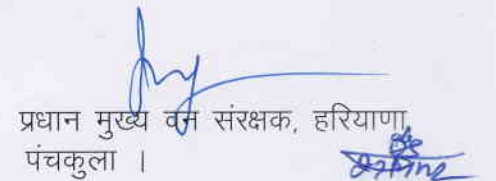 प्रधान मुख्य वन संरक्षक, हरियाणा,
पंचकुला ।